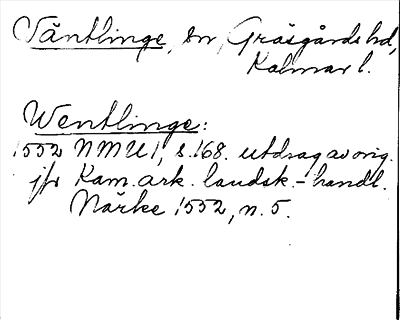 Väntlinge, sn, Gräsgårds hd,
Kalmar l.
Wentlinge:
1552 NMU 1, s. 168. utdrag av orig.
jfr Kam. ark. landsk.-handl.
Närke 1552, n. 5.